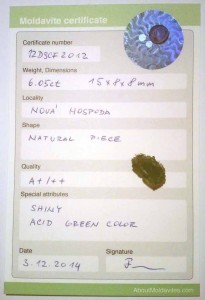 Moldavite certificate
Certificate number
12D3CF2012
Weight, Dimensions
6.05ct 15x8x8mm
Locality
NOVÁ HOSPODA
Shape
NATURAL PIECE
Quality
A+/++
Special attributes
SHINY
ACID GREEN COLOR
Date Signature
3.12.2014
AboutMoldavites.com